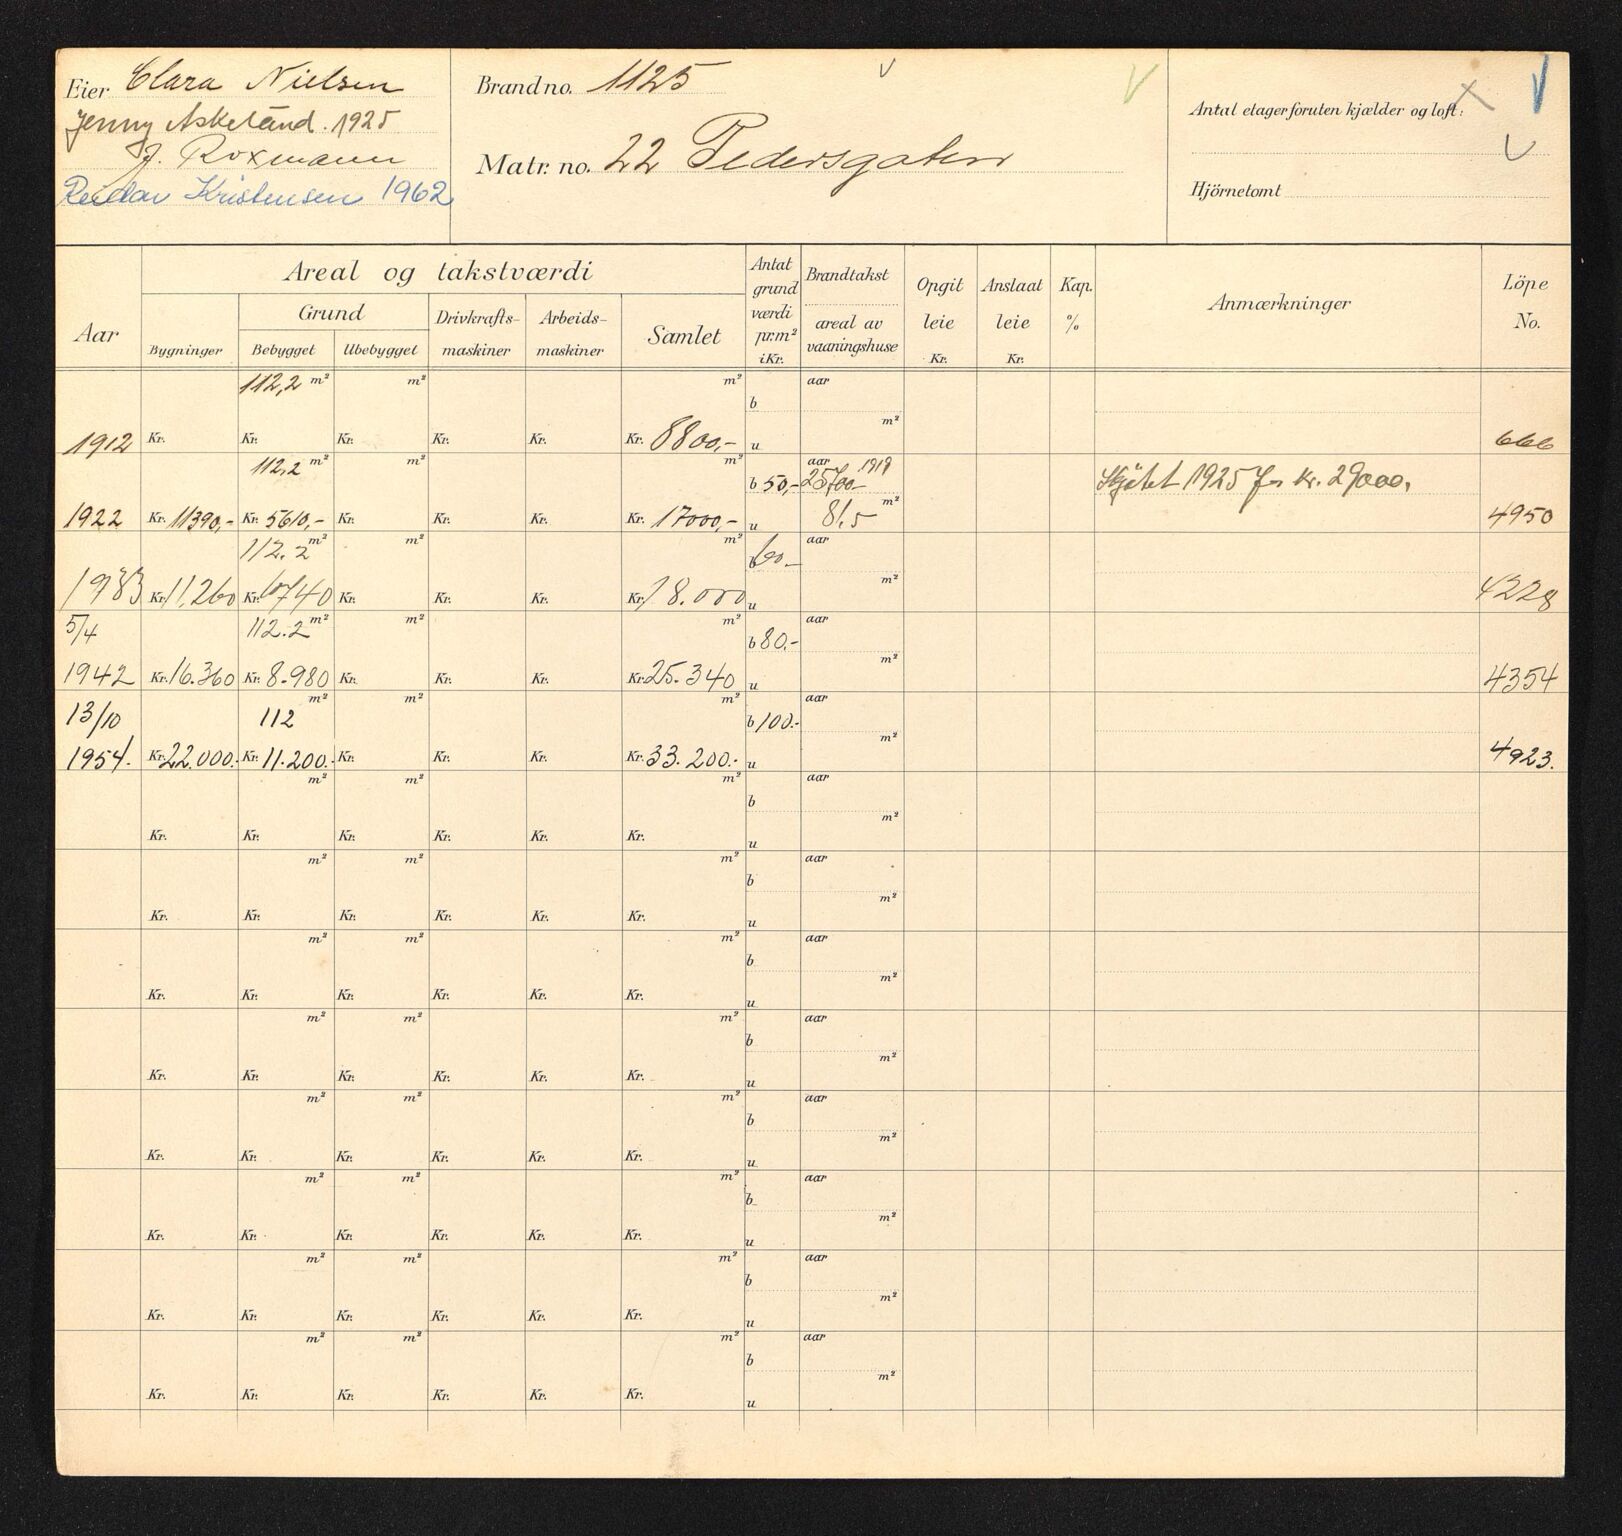 Eier Clara Nielsen
Jenny Askeland. 1925
J. Roxmann
Reidar Kristensen 1962
Brand no. 1125
Matr. no. 22 Pedersgaten
Antal etager foruten kjælder og loft:
Hjörnetomt
Aar
Areal og takstværdi
Bygninger
Grund
Bebygget Ubebygget
Drivkrafts-
maskiner
Arbeids-
maskiner
Samlet
Antat
grund
værdi
pr.m²
i Kr.
Brandtakst
areal av
vaaningshuse
Opgit
leie
Kr.
Anslaat
leie
Kr.
Kap.
%
Anmærkninger
Löpe
No.
112,2 m² m² m² aar
b
m²
1912 Kr. Kr. Kr. Kr. Kr. Kr. 8800,- u 666
112,2 m² m² m² aar 1919
b 50,- 25700- Skjötet 1925 for kr. 29000,
m²
1922 Kr. 11390,- Kr. 5610,- Kr. Kr. Kr. Kr. 17000,- u 81,5 4950
112.2 m² m² m² aar
b 60.-
m²
1933 Kr. 11,260 Kr. 6740 Kr. Kr. Kr. Kr. 18.000 u 4228
5/4 112.2 m² m² m² aar
b 80.-
m²
1942 Kr. 16.360 Kr. 8.980 Kr. Kr. Kr. Kr. 25.340 u 4354
13/10 112 m² m² m² aar
b 100.-
m²
1954. Kr. 22.000.- Kr. 11.200.- Kr. Kr. Kr. Kr. 33.200.- u 4923.
m² m² m² aar
b
m²
Kr. Kr. Kr. Kr. Kr. Kr. u
m² m² m² aar
b
m²
Kr. Kr. Kr. Kr. Kr. Kr. u
m² m² m² aar
b
m²
Kr. Kr. Kr. Kr. Kr. Kr. u
m² m² m² aar
b
m²
Kr. Kr. Kr. Kr. Kr. Kr. u
m² m² m² aar
b
m²
Kr. Kr. Kr. Kr. Kr. Kr. u
m² m² m² aar
b
m²
Kr. Kr. Kr. Kr. Kr. Kr. u
m² m² m² aar
b
m²
Kr. Kr. Kr. Kr. Kr. Kr. u
m² m² m² aar
b
m²
Kr. Kr. Kr. Kr. Kr. Kr. u